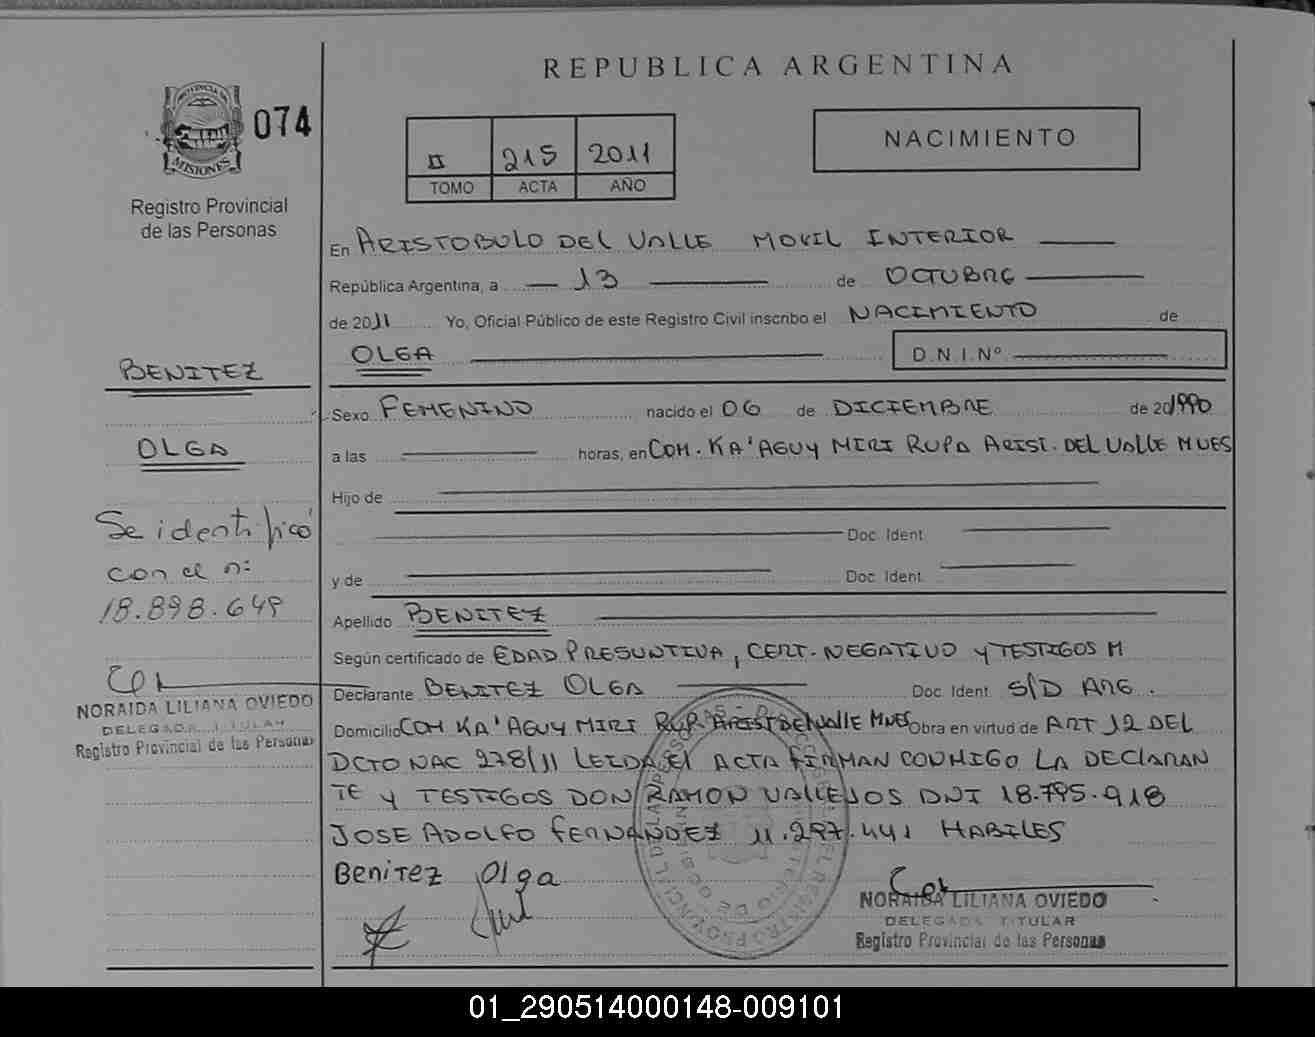 REPUBLICA ARGENTINA
PROVINCIA DE
MISIONES
074
Registro Provincial
de las Personas
II 215 2011
TOMO ACTA AÑO
NACIMIENTO
En ARISTOBULO DEL VALLE MOVIL INTERIOR
República Argentina, a 13 de OCTUBRE
de 2011 Yo, Oficial Público de este Registro Civil inscribo el NACIMIENTO de
OLGA D.N.I.Nº
BENITEZ
OLGA
Se identificó
con el nº
18.898.649
NORAIDA LILIANA OVIEDO
DELEGADA TITULAR
Registro Provincial de las Personas
Sexo FEMENINO nacido el 06 de DICIEMBRE de 201990
a las horas, en COM. KA'AGUY MIRI RUPA ARIST. DEL VALLE MNES
Hijo de
Doc. Ident.
y de Doc. Ident.
Apellido BENITEZ
Según certificado de EDAD PRESUNTIVA, CERT. NEGATIVO Y TESTIGOS M
Declarante BENITEZ OLGA Doc. Ident. S/D ARG.
Domicilio COM KA'AGUY MIRI RUP ARIST DEL VALLE MNES Obra en virtud de ART 12 DEL
DCTO NAC 278/11 LEIDA EL ACTA FIRMAN CONMIGO LA DECLARAN
TE Y TESTIGOS DON RAMON VALLEJOS DNI 18.795.918
JOSE ADOLFO FERNANDEZ 11.297.441 HABILES
Benitez Olga
NORAIDA LILIANA OVIEDO
DELEGADA TITULAR
Registro Provincial de las Personas
01_290514000148-009101